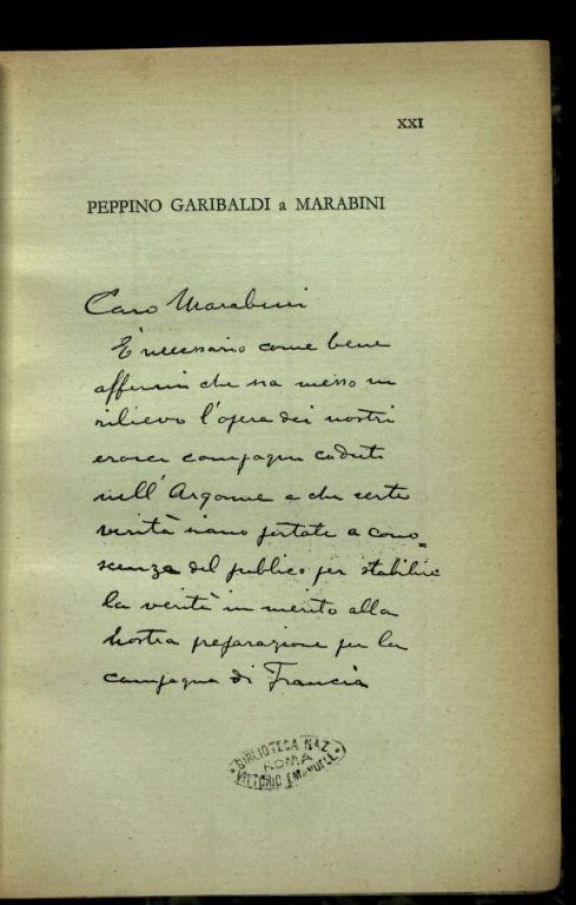 XXI
PEPPINO GARIBALDI a MARABINI
Caro Marabini
È necessario come bene
affermi che sia messo in
rilievo l'opera dei nostri
eroici compagni caduti
nell'Argonne e che certe
verità siano portate a cono=
scenza del publico per stabilire
la verità in merito alla
nostra preparazione per la
campagna di Francia
BIBLIOTECA NAZ.
ROMA
VITTORIO EMANUELE